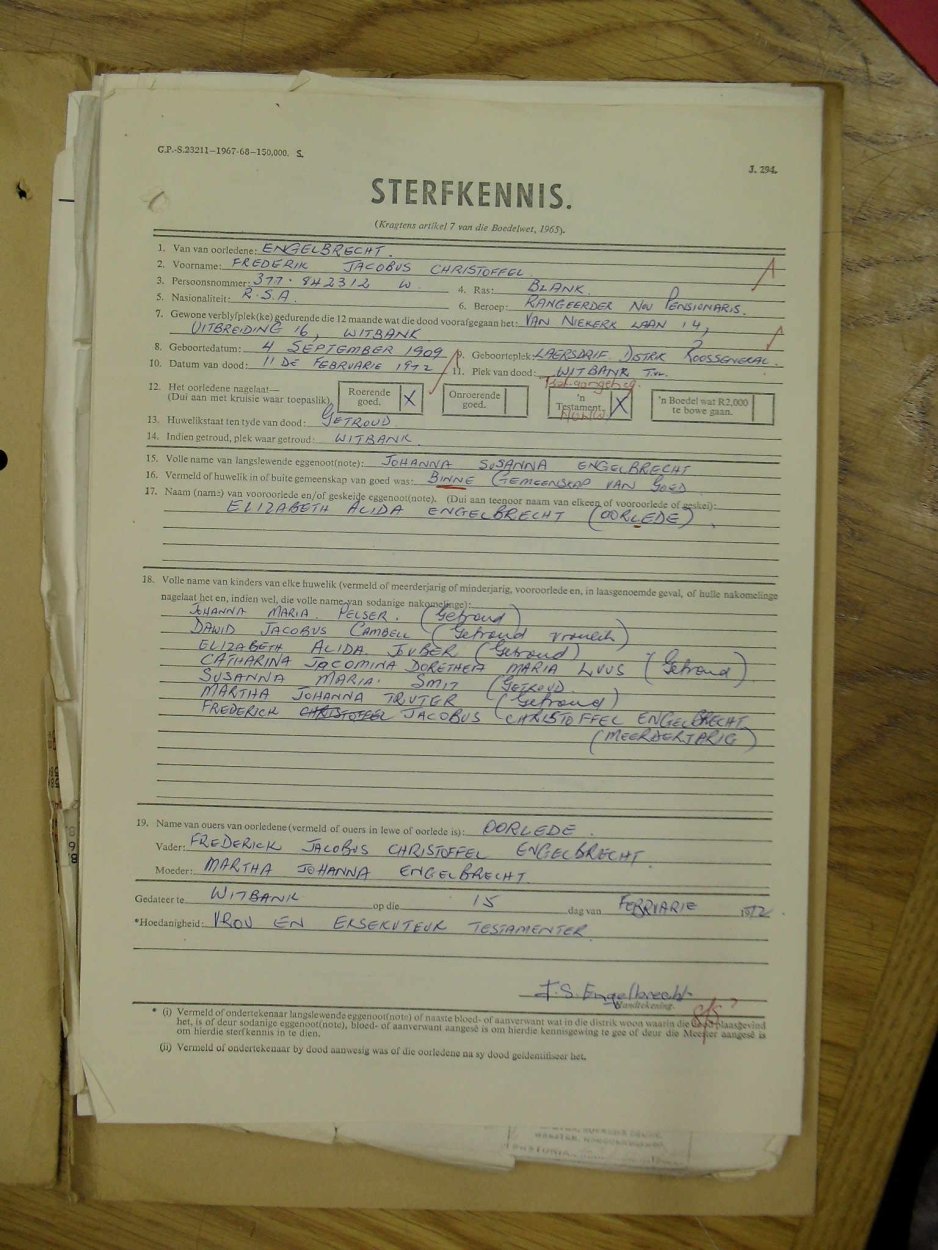 G.P.-S.23211—1967-68—150,000. S.
J. 294.
STERFKENNIS.
(Kragtens artikel 7 van die Boedelwet, 1965).
1. Van van oorledene: ENGELBRECHT.
2. Voorname: FREDERIK JACOBUS CHRISTOFFEL
3. Persoonsnommer: 377·842312 W 4. Ras: BLANK.
5. Nasionaliteit: R.S.A. 6. Beroep: RANGEERDER NOU PENSIONARIS.
7. Gewone verblyfplek(ke) gedurende die 12 maande wat die dood voorafgegaan het: VAN NIEKERK LAAN 14,
UITBREIDING 16, WITBANK
8. Geboortedatum: 4 SEPTEMBER 1909 9. Geboorteplek: LAERSDRIF, DISTRIK ROOSSENEKAL
10. Datum van dood: 11 DE FEBRUARIE 1972 11. Plek van dood: WITBANK TVL.
12. Het oorledene nagelaat—
(Dui aan met kruisie waar toepaslik)
Roerende goed. X
Onroerende goed.
'n Testament. X
'n Boedel wat R2,000 te bowe gaan.
13. Huwelikstaat ten tyde van dood: GETROUD
14. Indien getroud, plek waar getroud: WITBANK.
15. Volle name van langslewende eggenoot(note): JOHANNA SUSANNA ENGELBRECHT
16. Vermeld of huwelik in of buite gemeenskap van goed was: BINNE GEMEENSKAP VAN GOED
17. Naam (name) van vooroorlede en/of geskeide eggenoot(note). (Dui aan teenoor naam van elkeen of vooroorlede of geskei):
ELIZABETH ALIDA ENGELBRECHT (OORLEDE)
18. Volle name van kinders van elke huwelik (vermeld of meerderjarig of minderjarig, vooroorlede en, in laasgenoemde geval, of hulle nakomelinge
nagelaat het en, indien wel, die volle name van sodanige nakomelinge):
JOHANNA MARIA PELSER. (Getroud)
DAWID JACOBUS CAMBELL (Getroud vrouech)
ELIZABETH ALIDA JUBER (Getroud)
CATHARINA JACOMINA DORETHEA MARIA LUUS (Getroud)
SUSANNA MARIA SMIT (GETROUD
MARTHA JOHANNA TRUTER (Getroud)
FREDERICK CHRISTOFFEL JACOBUS CHRISTOFFEL ENGELBRECHT
(MEERDERJARIG)
19. Name van ouers van oorledene (vermeld of ouers in lewe of oorlede is): OORLEDE.
Vader: FREDERICK JACOBUS CHRISTOFFEL ENGELBRECHT
Moeder: MARTHA JOHANNA ENGELBRECHT.
Gedateer te WITBANK op die 15 dag van FEBRUARIE 1972.
*Hoedanigheid: VROU EN EKSEKUTEUR TESTAMENTER
J.S. Engelbrecht
Handtekening.
* (i) Vermeld of ondertekenaar langslewende eggenoot(note) of naaste bloed- of aanverwant wat in die distrik woon waarin die dood plaasgevind
het, is of deur sodanige eggenoot(note), bloed- of aanverwant aangesê is om hierdie kennisgewing te gee of deur die Meester aangesê is
om hierdie sterfkennis in te dien.
(ii) Vermeld of ondertekenaar by dood aanwesig was of die oorledene na sy dood geïdentifiseer het.